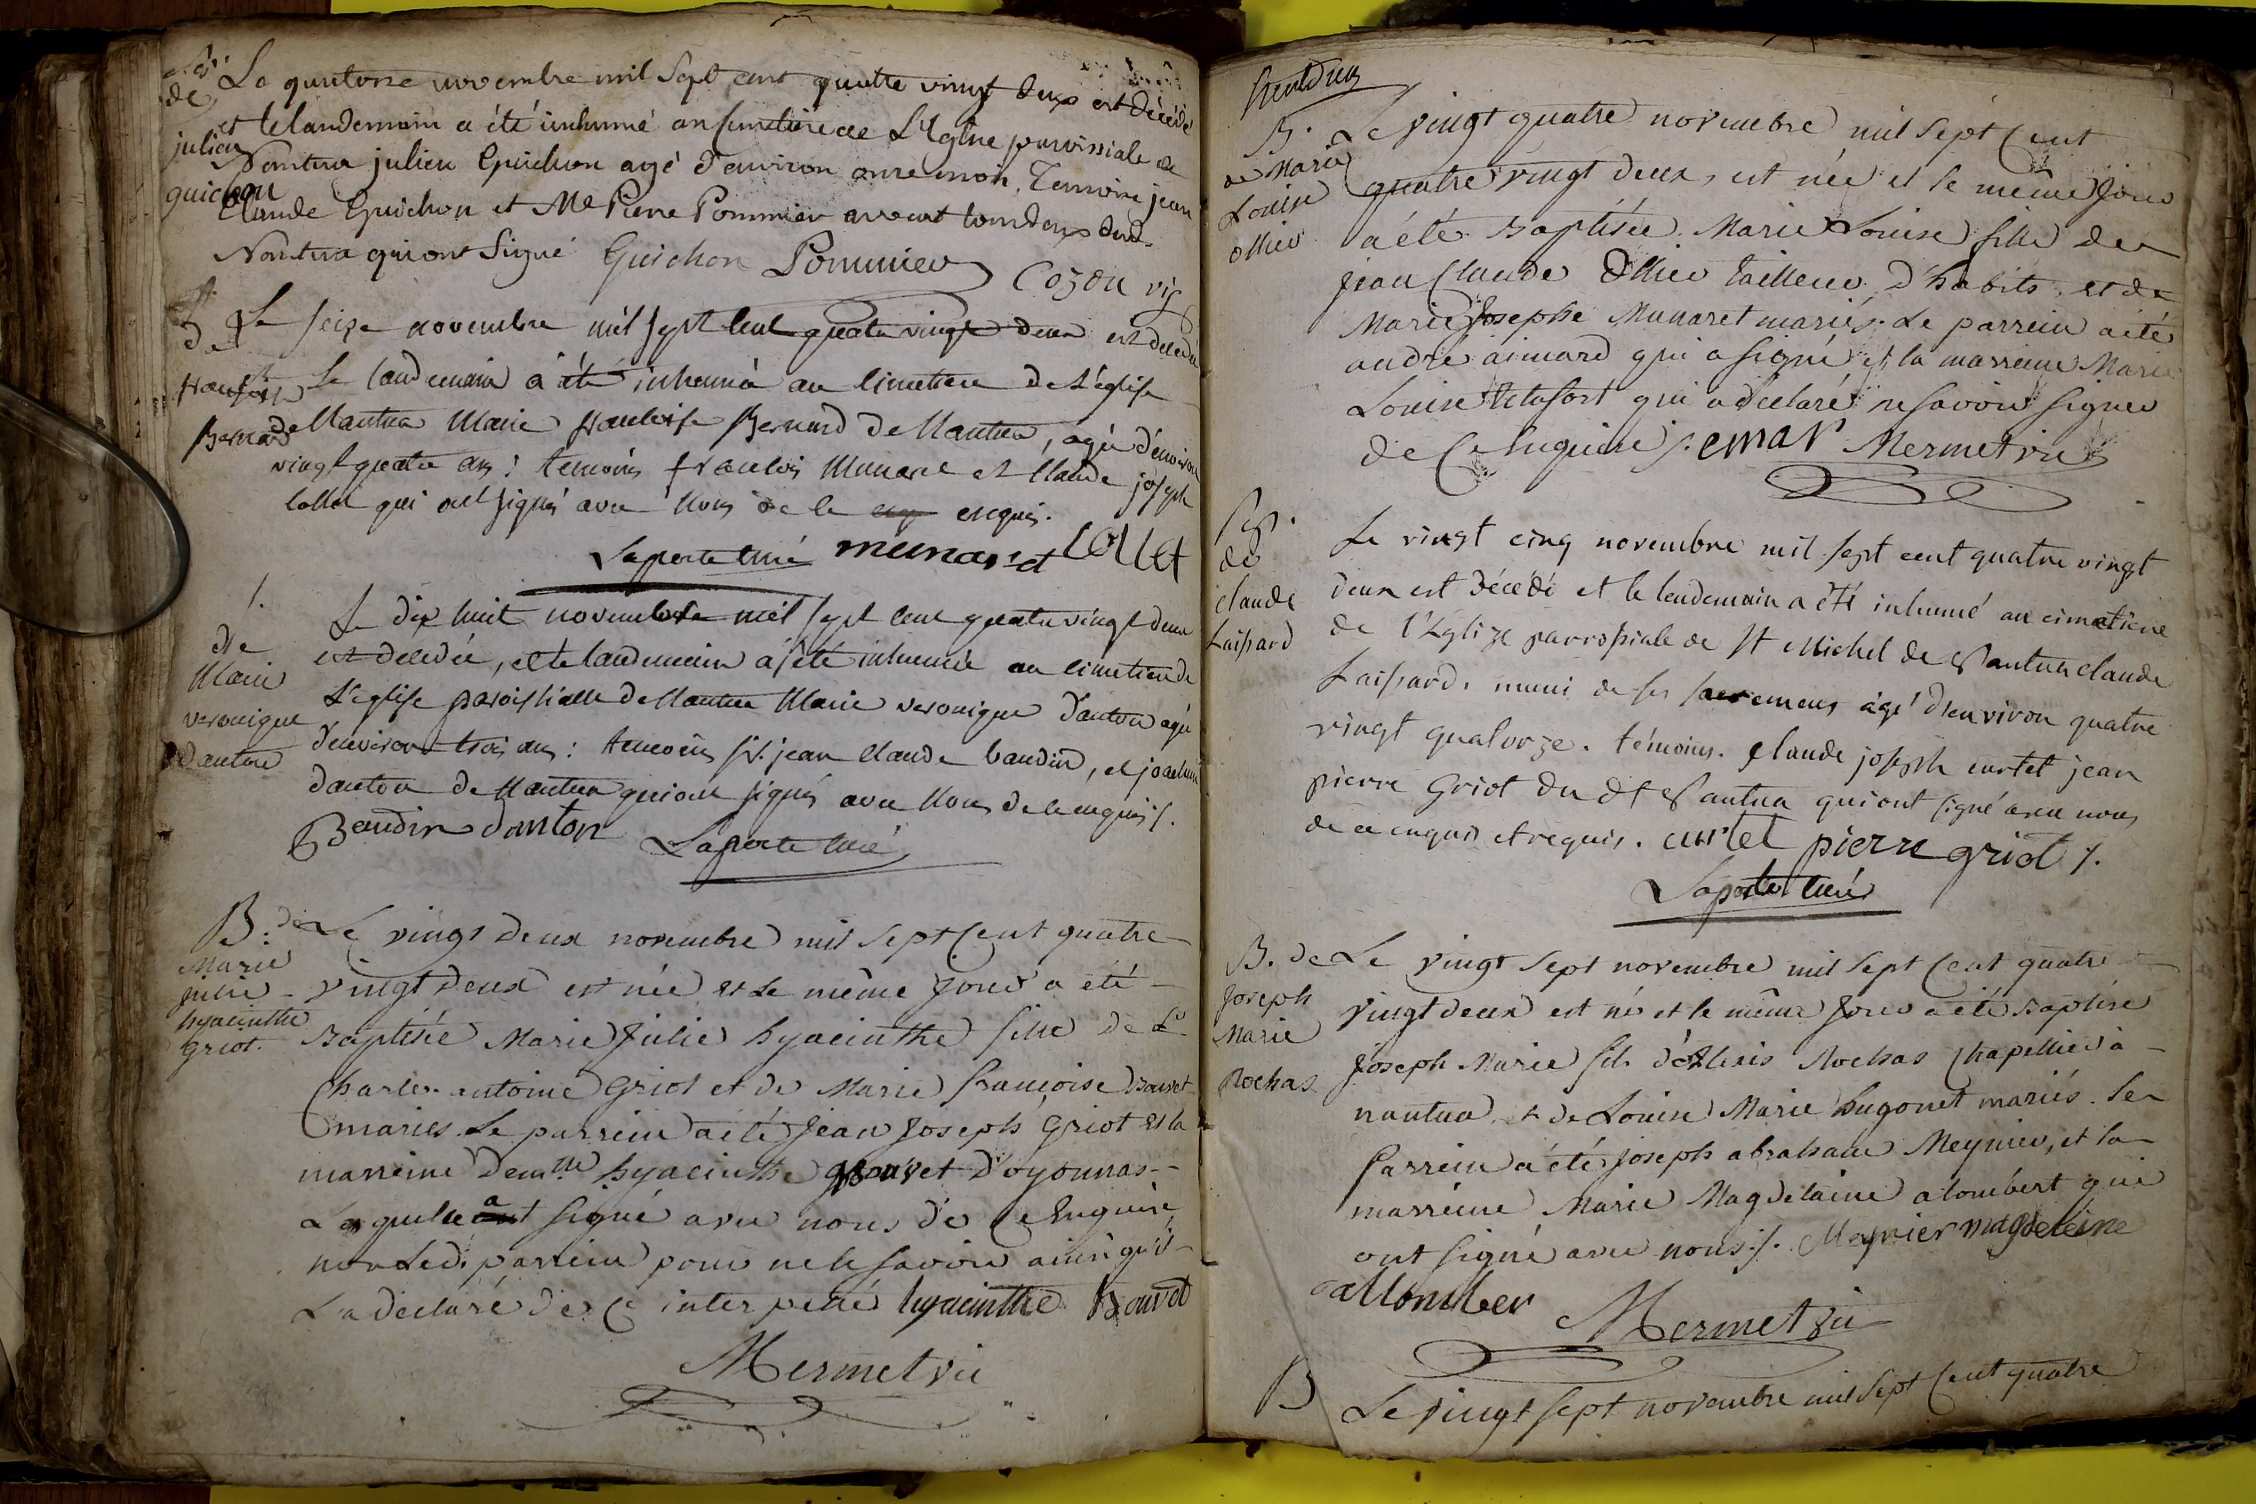 S. de julien guichon
Le quatorze novembre mil Sept cent quatre vingt deux est décédé
et le landemain a été inhumé au simetiere de L'Eglise paroissiale de
Nantua julien Guichon agé d'environ onze mois, Temoins jean
Claude Guichon et Me Pierre Pommier avocat tous deux dud.
Nantua qui ont Signé Guichon Pommier Cozon vic
S. de françoise Bernard
Le seize novembre mil sept cent quatre vingt deux est décédée
et le landemain a été inhumée au cimetiere de l'église
de Nantua Marie francoise Bernard de Nantua, agée d'environ
vingt quatre ans : temoins francois Munaret et Claude joseph
Collet qui ont signés avec Nous de ce enquis.
Laporte curé munaret collet
S.
de
Marie
veronique
Danton
Le dix huit novembre mil sept cent quatre vingt deux
est decedée, et le landemain a été inhumée au cimetiere de
L'église paroissialle de Nantua Marie veronique Danton agée
d'environ trois ans : temoins sr. jean Claude baudin, et joachim
danton de Nantua qui ont signés avec Nous de ce enquis /.
Baudin danton Laporte curé
B. de
Marie
julie
hyacinthe
Griot.
Le vingt deux novembre mil sept Cent quatre
vingt deux est née et Le même jour a été
Baptisée Marie Julie hyacinthe fille de Sr
Charles antoine Griot et de Marie françoise Bouvet
mariés. Le parrein a été Jean Joseph Griot et la
marreine demlle hyacinthe Bouvet d'oyonnas
Laquelle a signé avec nous de Ce Enquise,
non Led. parrein pour ne le savoir ainsi qu'il
L'a déclaré de Ce interpellé hyacinthe Bouvet
Mermet vic
B.
de Marie
Louise
ollier
Le vingt quatre novembre mil sept Cent
quatre vingt deux, est née et le même Jour
a été Baptisée Marie Louise fille de
jean Claude Ollier tailleur d'habits, et de
Marie Josephe Munaret mariés. Le parrein a été
andré aimard qui a signé et la marreine Marie
Louise qui a déclaré ne savoir signer
de Ce Enquise /. emar Mermet vic
S.
de
claude
Laissard
Le vingt cinq novembre mil sept cent quatre vingt
deux est décédé et le lendemain a été inhumé au cimetiere
de l'Eglize parrossiale de St Michel de Nantua claude
Laissard, muni de ses sacremens agé d'environ quatre
vingt quatorze. témoins. claude joseph curtet jean
pierre Griot du dt Nantua qui ont signé avec nous
de ce enquis et requis. curtet pierre griot /.
Laporte curé
B. de
Joseph
Marie
Rochas
Le vingt sept novembre mil sept Cent quatre
vingt deux est né et le même jour a été Baptisé
Joseph Marie fils d'Alexis Rochas Chapellier à
nantua et de Louise Marie hugonet mariés. Le
Parrein a été joseph abraham Meynier, et la
marreine Marie Magdelaine alombert qui
ont signé avec nous /. Meynier magdeleine
allomber Mermet vic
B
Le vingt sept novembre mil sept Cent quatre